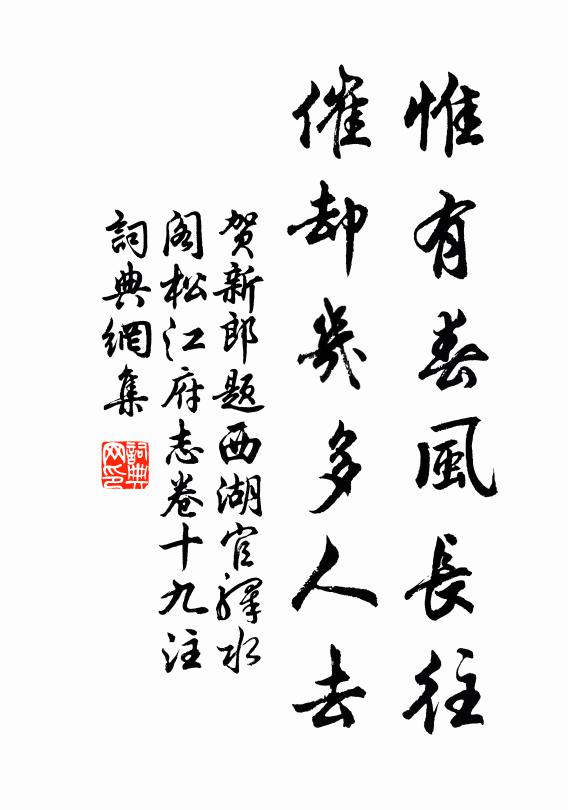 惟有春風長往
催却幾多人去
賀新郎題西湖官驛水
閣松江府志卷十九注
詞典網集
詞典网印